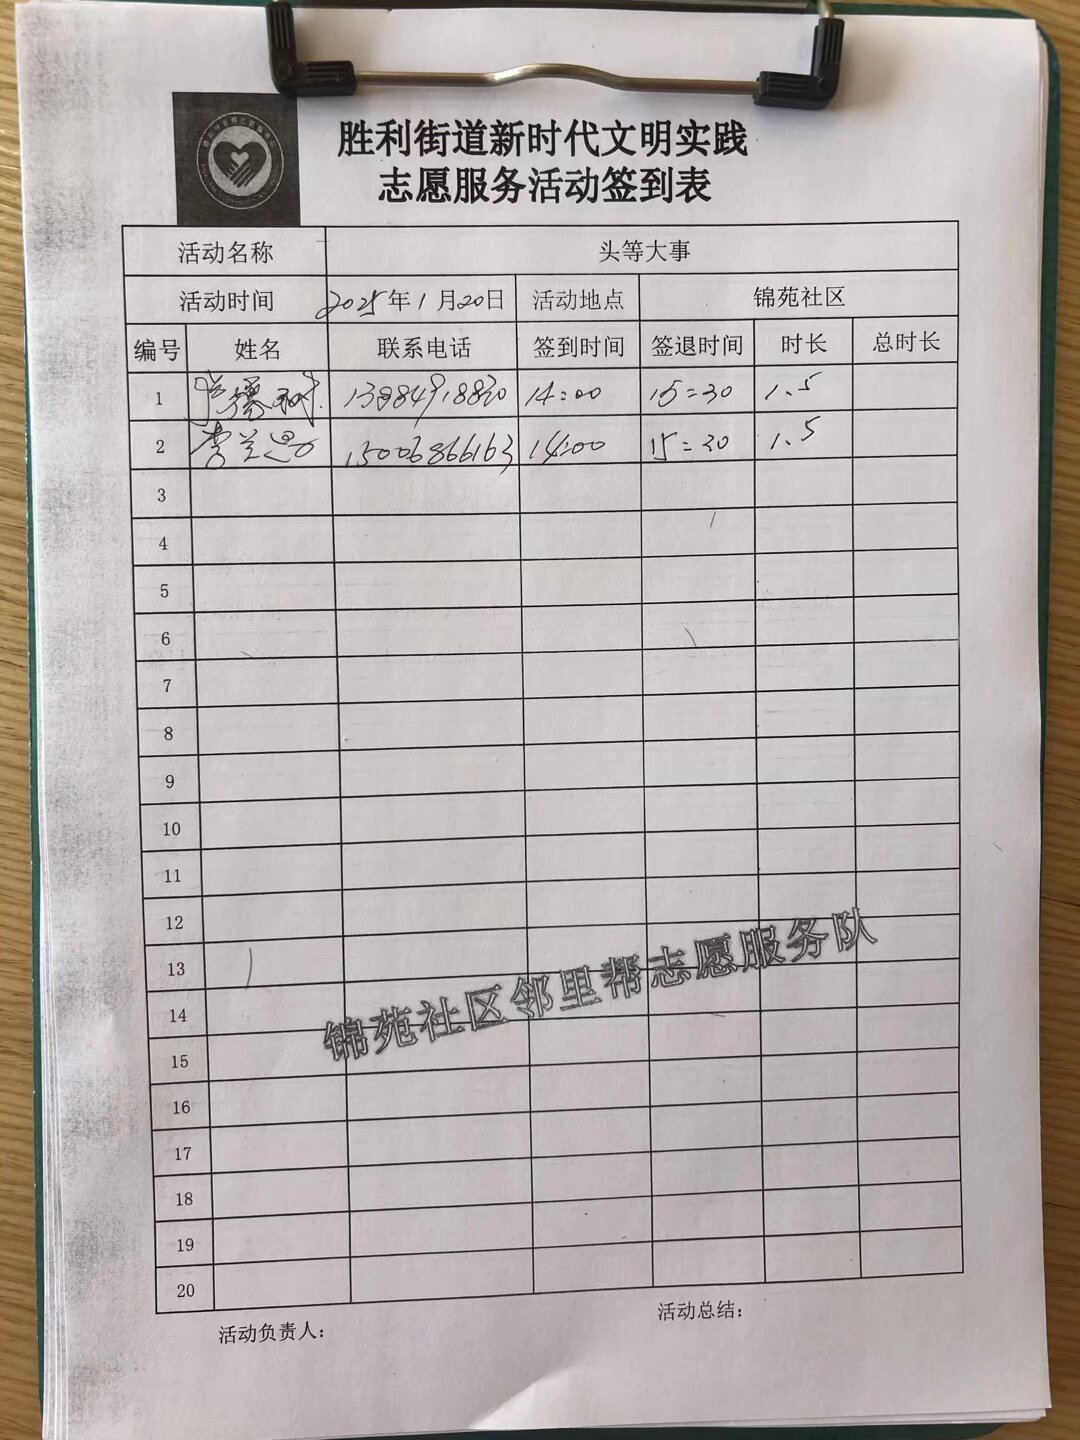 胜利街道新时代文明实践
志愿服务活动签到表
活动名称 头等大事
活动时间 2025年1月20日 活动地点 锦苑社区
编号 姓名 联系电话 签到时间 签退时间 时长 总时长
1 14:00 15:30 1.5
2 15006866163 14:00 15:30 1.5
3
4
5
6
7
8
9
10
11
12
13
14
15
16
17
18
19
20
锦苑社区邻里帮志愿服务队
活动负责人:
活动总结: